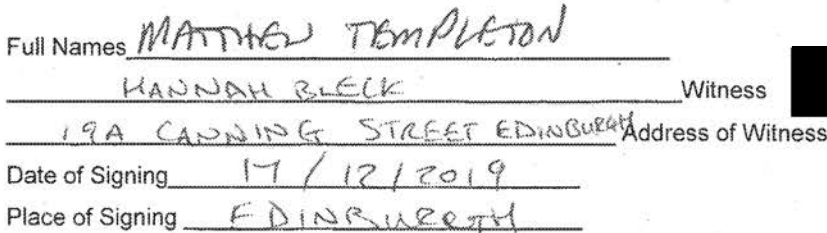 Full Names MATTHEW TEMPLETON
HANNAH BLECK Witness
19A CANNING STREET EDINBURGH Address of Witness
Date of Signing 17/12/2019
Place of Signing EDINBURGH